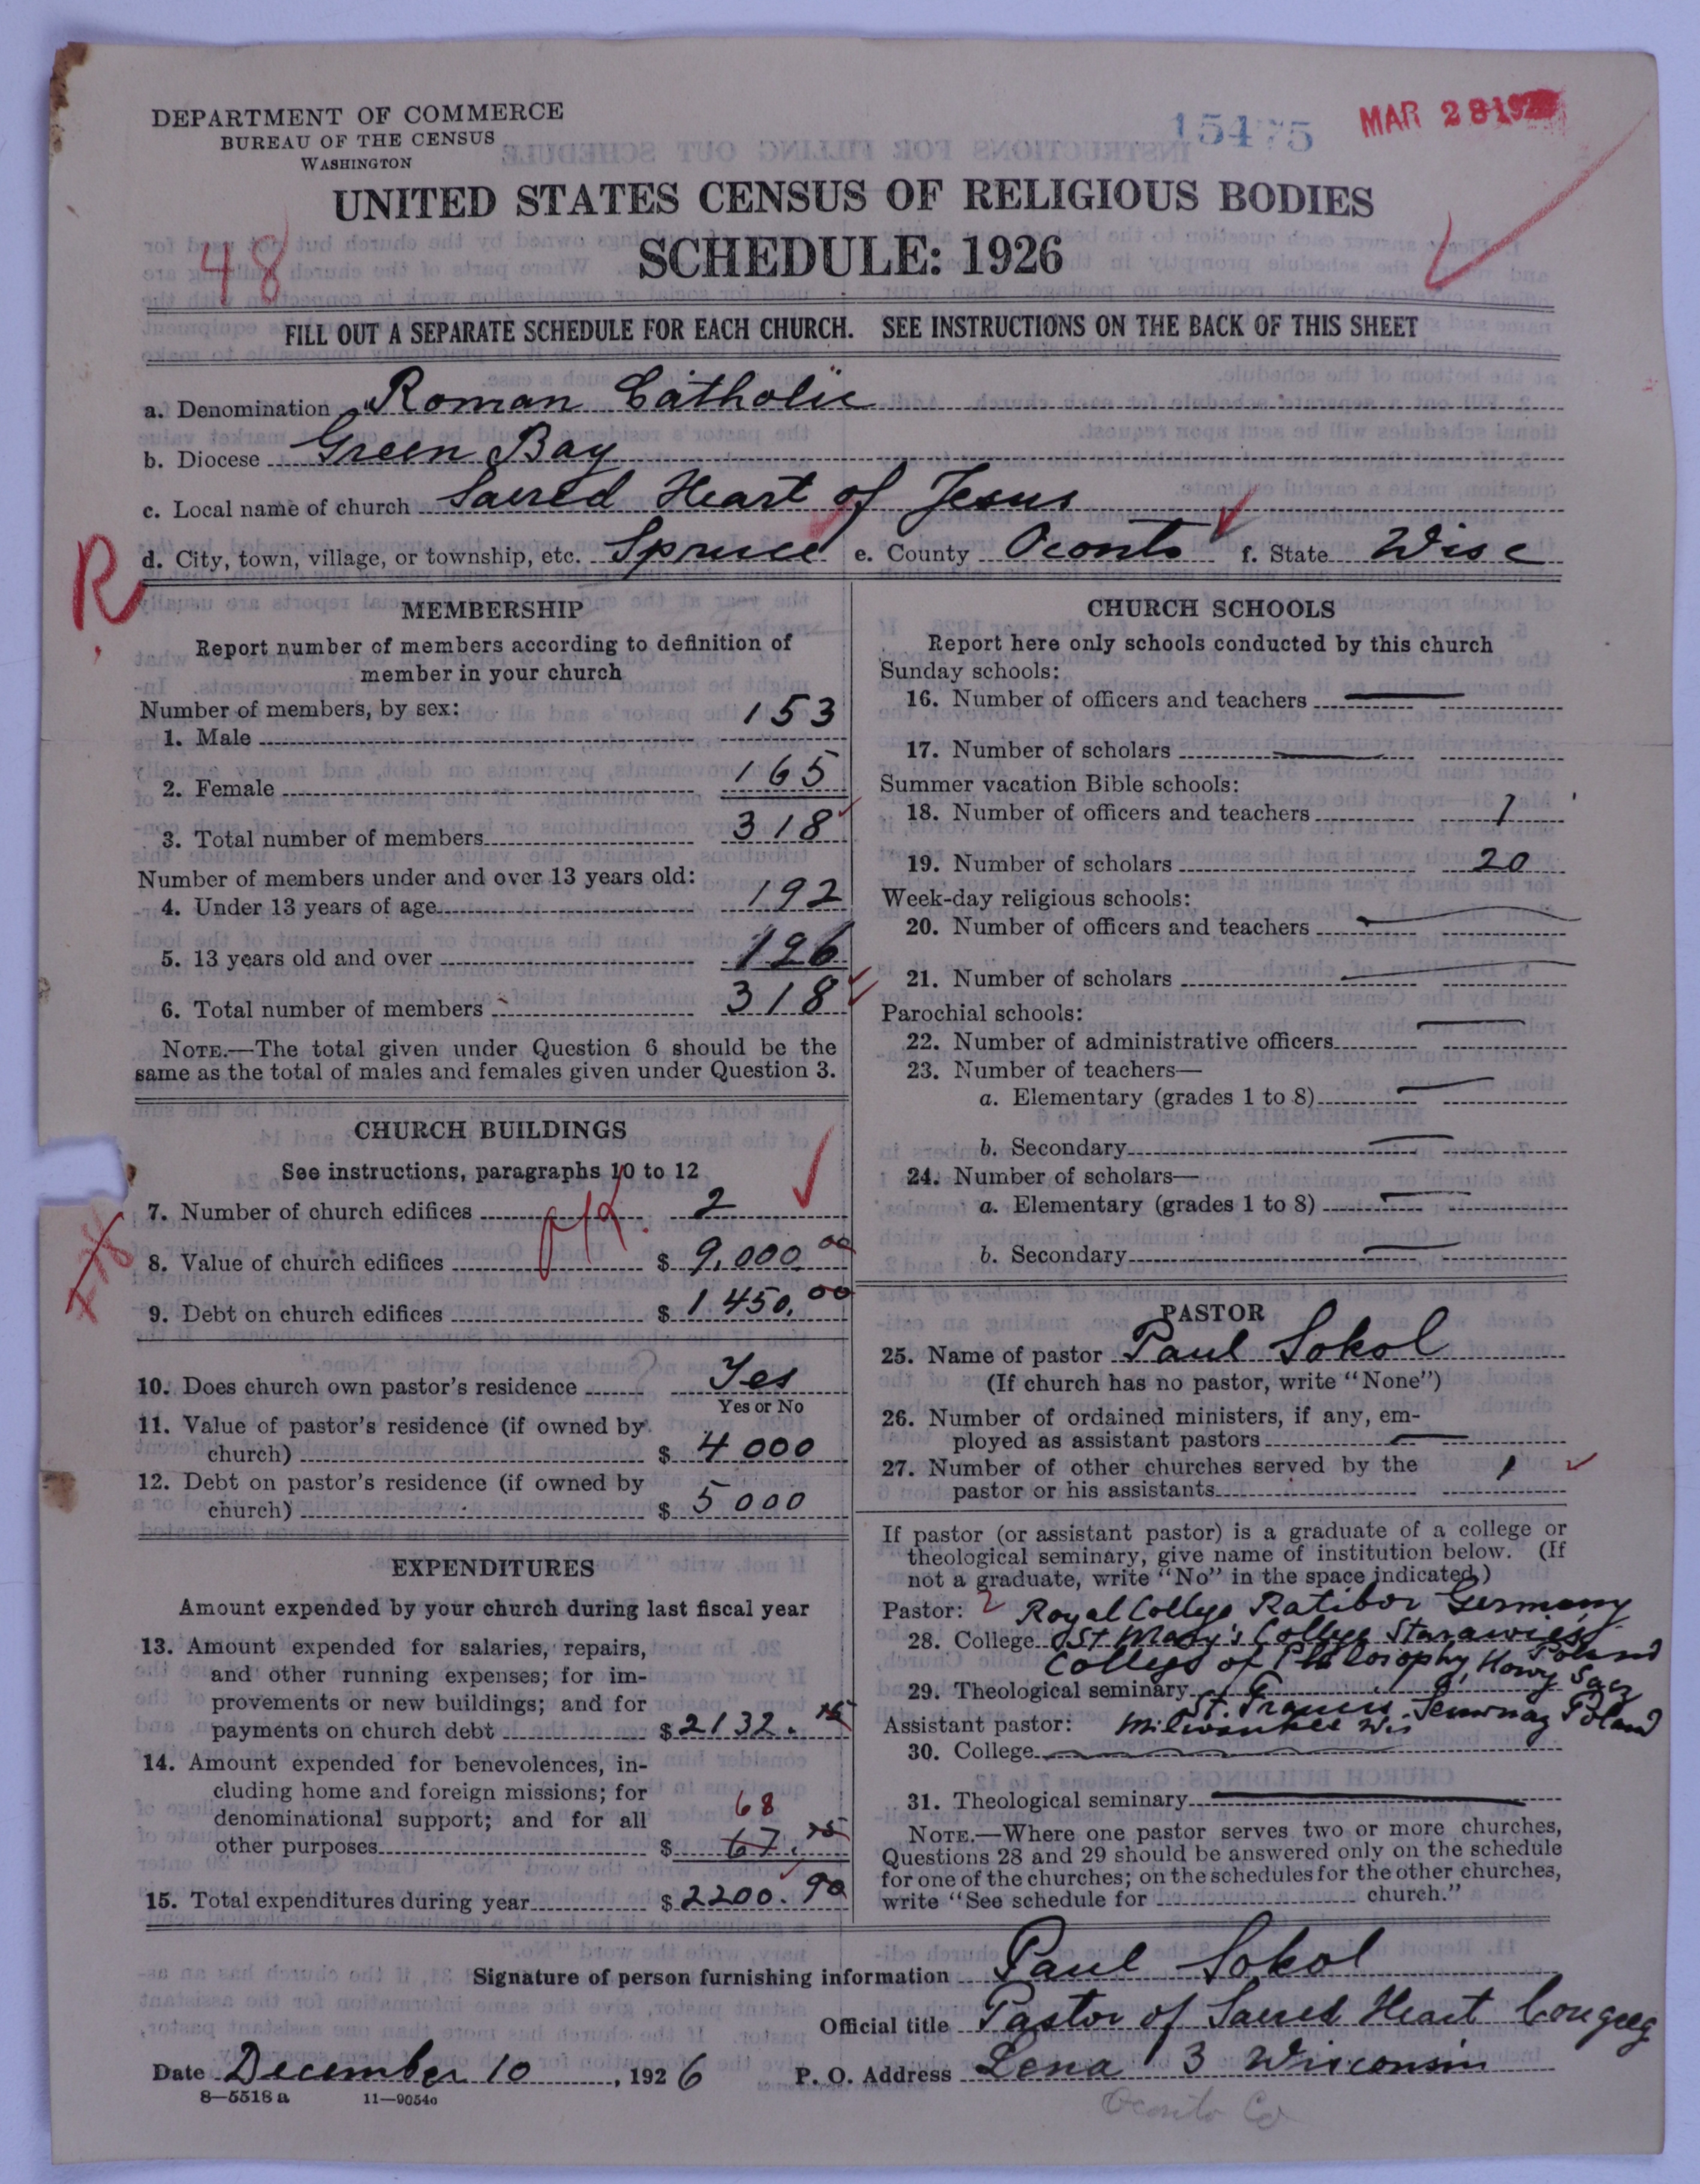 DEPARTMENT OF COMMERCE
BUREAU OF THE CENSUS
WASHINGTON
15475
MAR 28 192
UNITED STATES CENSUS OF RELIGIOUS BODIES
SCHEDULE: 1926
48
FILL OUT A SEPARATE SCHEDULE FOR EACH CHURCH. SEE INSTRUCTIONS ON THE BACK OF THIS SHEET
a. Denomination Roman Catholic
b. Diocese Green Bay
c. Local name of church Sacred Heart of Jesus
d. City, town, village, or township, etc. Spruce e. County Oconto f. State Wisc
R
MEMBERSHIP
Report number of members according to definition of
member in your church
Number of members, by sex:
1. Male 153
2. Female 165
3. Total number of members 318
Number of members under and over 13 years old:
4. Under 13 years of age 192
5. 13 years old and over 126
6. Total number of members 318
NOTE.—The total given under Question 6 should be the
same as the total of males and females given under Question 3.
CHURCH BUILDINGS
See instructions, paragraphs 10 to 12
7. Number of church edifices 2
8. Value of church edifices $ 9,000.00
9. Debt on church edifices $ 1450.00
10. Does church own pastor's residence Yes
Yes or No
11. Value of pastor's residence (if owned by
church) $ 4000
12. Debt on pastor's residence (if owned by
church) $ 5000
EXPENDITURES
Amount expended by your church during last fiscal year
13. Amount expended for salaries, repairs,
and other running expenses; for im-
provements or new buildings; and for
payments on church debt $ 2132.15
14. Amount expended for benevolences, in-
cluding home and foreign missions; for
denominational support; and for all
68
other purposes $ 67.75
15. Total expenditures during year $ 2200.90
CHURCH SCHOOLS
Report here only schools conducted by this church
Sunday schools:
16. Number of officers and teachers
17. Number of scholars
Summer vacation Bible schools:
18. Number of officers and teachers 1
19. Number of scholars 20
Week-day religious schools:
20. Number of officers and teachers
21. Number of scholars
Parochial schools:
22. Number of administrative officers
23. Number of teachers—
a. Elementary (grades 1 to 8)
b. Secondary
24. Number of scholars—
a. Elementary (grades 1 to 8)
b. Secondary
PASTOR
25. Name of pastor Paul Sokol
(If church has no pastor, write "None")
26. Number of ordained ministers, if any, em-
ployed as assistant pastors
27. Number of other churches served by the
pastor or his assistants 1
If pastor (or assistant pastor) is a graduate of a college or
theological seminary, give name of institution below. (If
not a graduate, write "No" in the space indicated.)
Pastor: Royal College Ratibor Germany
28. College St Mary's College Starawieś Poland
College of Philosophy, Nowy Sącz
29. Theological seminary St. Francis Seminay Poland
Assistant pastor: Milwaukee Wis
30. College
31. Theological seminary
NOTE.—Where one pastor serves two or more churches,
Questions 28 and 29 should be answered only on the schedule
for one of the churches; on the schedules for the other churches,
write "See schedule for church."
Signature of person furnishing information Paul Sokol
Official title Pastor of Sacred Heart Congreg
Date December 10, 1926 P. O. Address Lena 3 Wisconsin
8—5518 a 11—9054a
Oconto Co